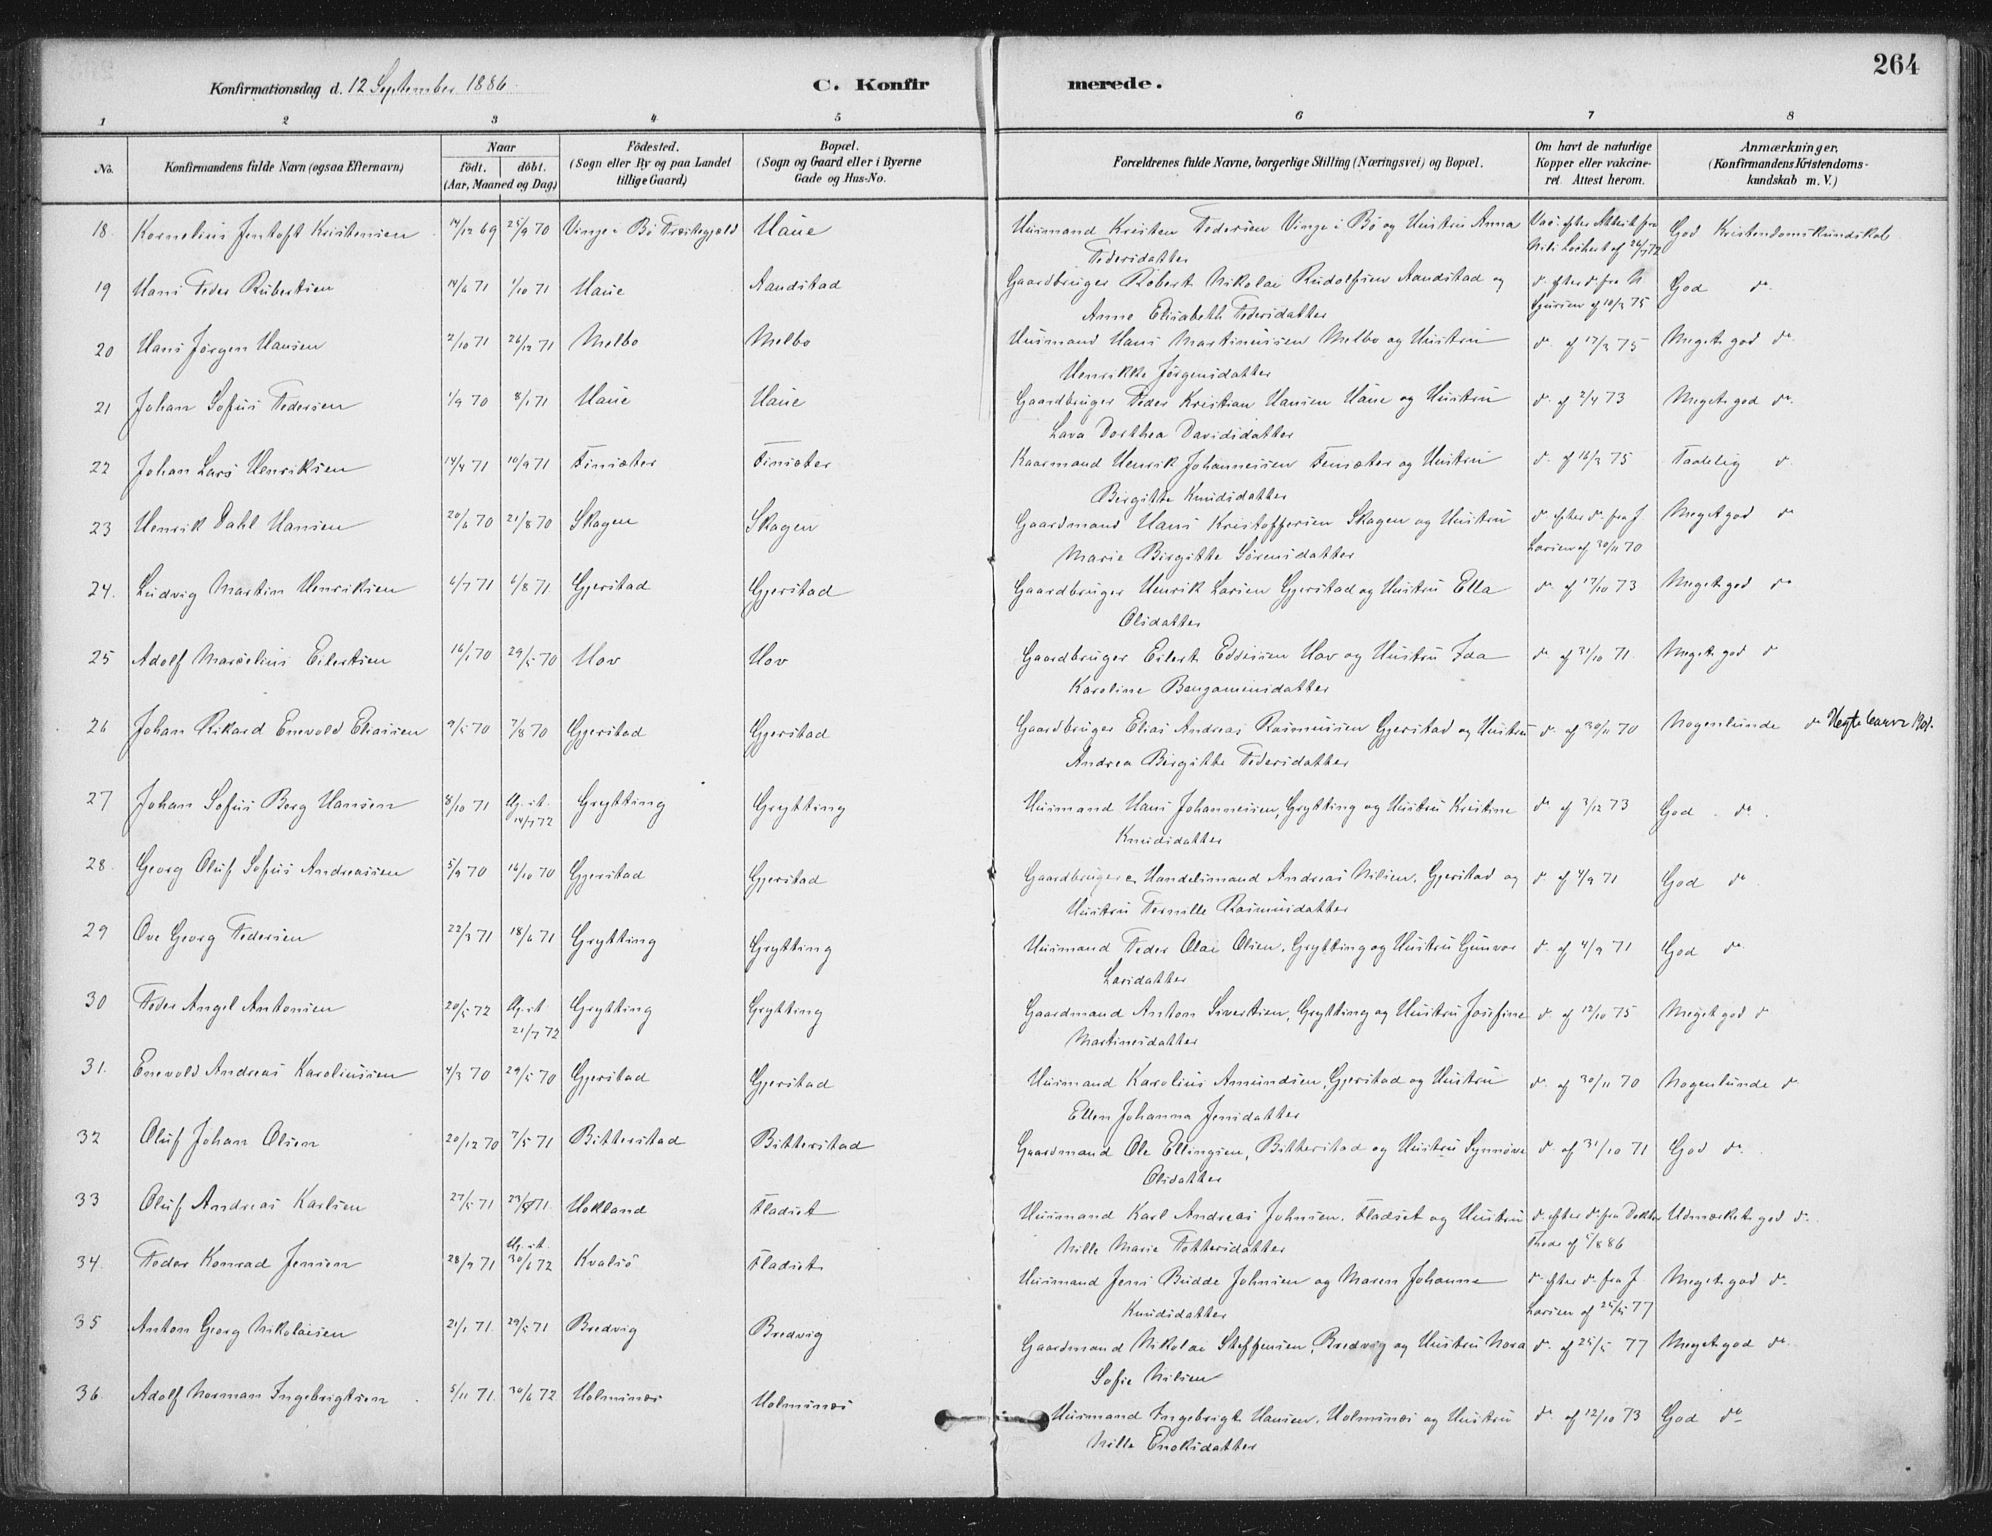 264
Konfirmationsdag d. 12 September 1886. C. Konfirmerede.
1 2 3 4 5 6 7 8
No. Konfirmandens fulde Navn (ogsaa Efternavn) Naar født. døbt. (Aar, Maaned og Dag) Fødested. (Sogn eller By og paa Landet tillige Gaard) Bopæl. (Sogn og Gaard eller i Byerne Gade og Hus-No. Forældrenes fulde Navne, borgerlige Stilling (Næringsvei) og Bopæl. Om havt de naturlige Kopper eller vakcineret. Attest herom. Anmærkninger. (Konfirmandens Kristendomskundskab m. V.)
18. Kornelius Jentoft Kristensen 14/12 69 25/9 70 Vinje i Bø Præstegjæld Haue Husmand Kristen Pedersen Vinje i Bø og Hustru Anna God Kristendomskundskab
Pedersdatter
19 Hans Peder Robertsen 14/6 71 1/10 71 Haue Aandstad Gaardbruger Robert Nikolai Rudolfsen Aandstad og God do
Anne Elisabeth Pedersdatter 10/3 75
20 Hans Jørgen Hansen 2/10 71 26/12 71 Melbo Melbo Husmand Hans Martinussen Melbo og Hustru do af 17/3 75 Meget god do
Henrikke Jørgensdatter
21 Johan Sofus Pedersen 1/9 70 8/1 71 Haue Haue Gaardbruger Peder Kristian Hansen Haue og Hustru do af 2/4 73 Meget god do
Lava Dorthea Davidsdatter
22 Johan Lars Henriksen 14/4 71 10/9 71 Finsæter Finsæter Kaarmand Henrik Johannessen Finsæter og Hustru do af 16/3 75 Taalelig do
Birgitte Knudsdatter
23 Henrik Dahl Hansen 20/6 70 21/8 70 Skagen Skagen Gaardmand Hans Kristoffersen Skagen og Hustru do efter do fra J. Meget god do
Marie Birgitte Sørensdatter Larsen af 30/11 70
24. Ludvig Martin Henriksen 6/7 71 6/8 71 Gjerstad Gjerstad Gaardbruger Henrik Larsen Gjerstad og Hustru Ella do af 17/10 73 Meget god do
Olsdatter
25 Adolf Marselius Eilertsen 16/1 70 29/5 70 Hov Hov Gaardbruger Eilert Eddissen Hov og Hustru Ida do af 31/10 71. Meget god do
Karoline Bengamensdatter
26 Johan Rikard Enevold Eliassen 9/5 70 7/8 70 Gjerstad Gjerstad Gaardbruger Elias Andreas Rasmussen Gjerstad og Hustru do af 30/11 70 Nogenlunde do
Andrea Birgitte Pedersdatter
27 Johan Sofus Borg Hansen 8/10 71 14/7 72 Grytting Grytting Husmand Hans Johannessen, Grytting og Hustru Kristine do af 3/12 73 God do.
Knudsdatter
28. Georg Oluf Sofus Andreassen 5/9 70 16/10 70 Gjerstad Gjerstad Gaardbruger Handelsmand Andreas Nilsen, Gjerstad og do af 4/9 71 God do
Hustru Pernille Rasmusdatter
29 Ove Georg Pedersen 22/3 71 18/6 71 Grytting Grytting Husmand Peder Olai Olsen, Grytting og Hustru Gunvor do af 4/9 71 God do
Larsdatter
30 Peder Angel Antonsen 20/5 72 21/7 72 Grytting Grytting Gaardmand Anton Sivertsen, Grytting og Hustru Josefine do af 12/10 75 Meget god do
Martinesdatter
31. Enevold Andreas Karoliussen 4/3 70 29/5 70 Gjerstad Gjerstad Husmand Karolius Amundsen, Gjerstad og Hustru do af 30/11 70 Nogenlunde do
Ellen Johanna Jensdatter
32 Oluf Johan Olsen 20/12 70 7/5 71 Bitterstad Bitterstad Gaardmand Ole Ellingsen, Bitterstad og Hustru Synnøve do af 31/10 71 God do
Olsdatter
33 Oluf Andreas Karlsen 27/5 71 Hokland Fladset Husmand Karl Andreas Johnsen, Fladset og Hustru do efter do fra Doktor Udmærket god do
Nille Marie Pettersdatter Thode af 5/8 86
34. Peder Konrad Jensen 28/9 71 30/6 72 Kvalsø Fladset Husmand Jens Budde Johnsen og Maren Johanna do efter do fra J. Meget god do
Knudsdatter Larsen af 25/5 77
35 Anton Georg Nikolaisen 21/1 71. 29/5 71 Bredvig Bredvig Gaardmand Nikolai Steffensen, Bredvig og Hustru Nora do af 25/5 77 Meget god do
Sofie Nilsen
36. Adolf Norman Ingebrigtsen 5/11 71. 30/6 72 Holmsnæs Holmsnæs Husmand Ingebrigt Hansen, Holmsnæs og Hustru do af 12/10 73 God do
Nille Enoksdatter